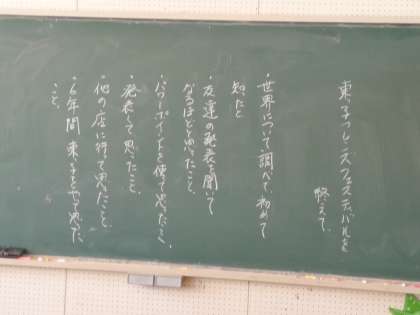 東っ子フレンズフェスティバルを
終えて、
・世界について調べて、初めて
知ったこと
・友達の発表を聞いて
なるほどと思ったこと。
・パワーポイントを使って思ったこと。
・発表して思ったこと。
・他の店に行って思ったこと。
・6年間東っ子をやって思った
こと。